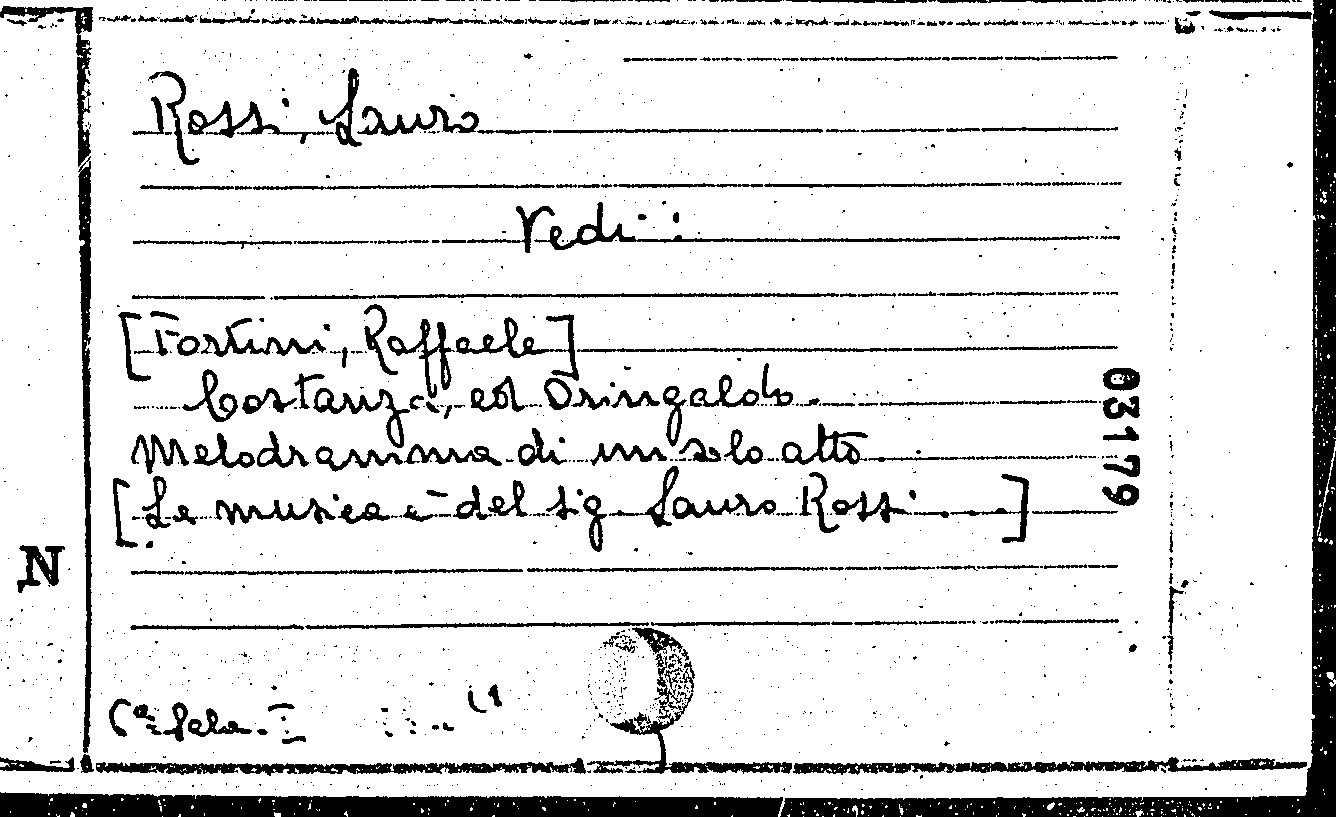 Rossi, Lauro
Vedi:
[Fortini, Raffaele]
Costanza, ed Oringaldo.
Melodramma di un solo atto.
[La musica è del sig. Lauro Rossi....]
03179
N
6ª Sala. I